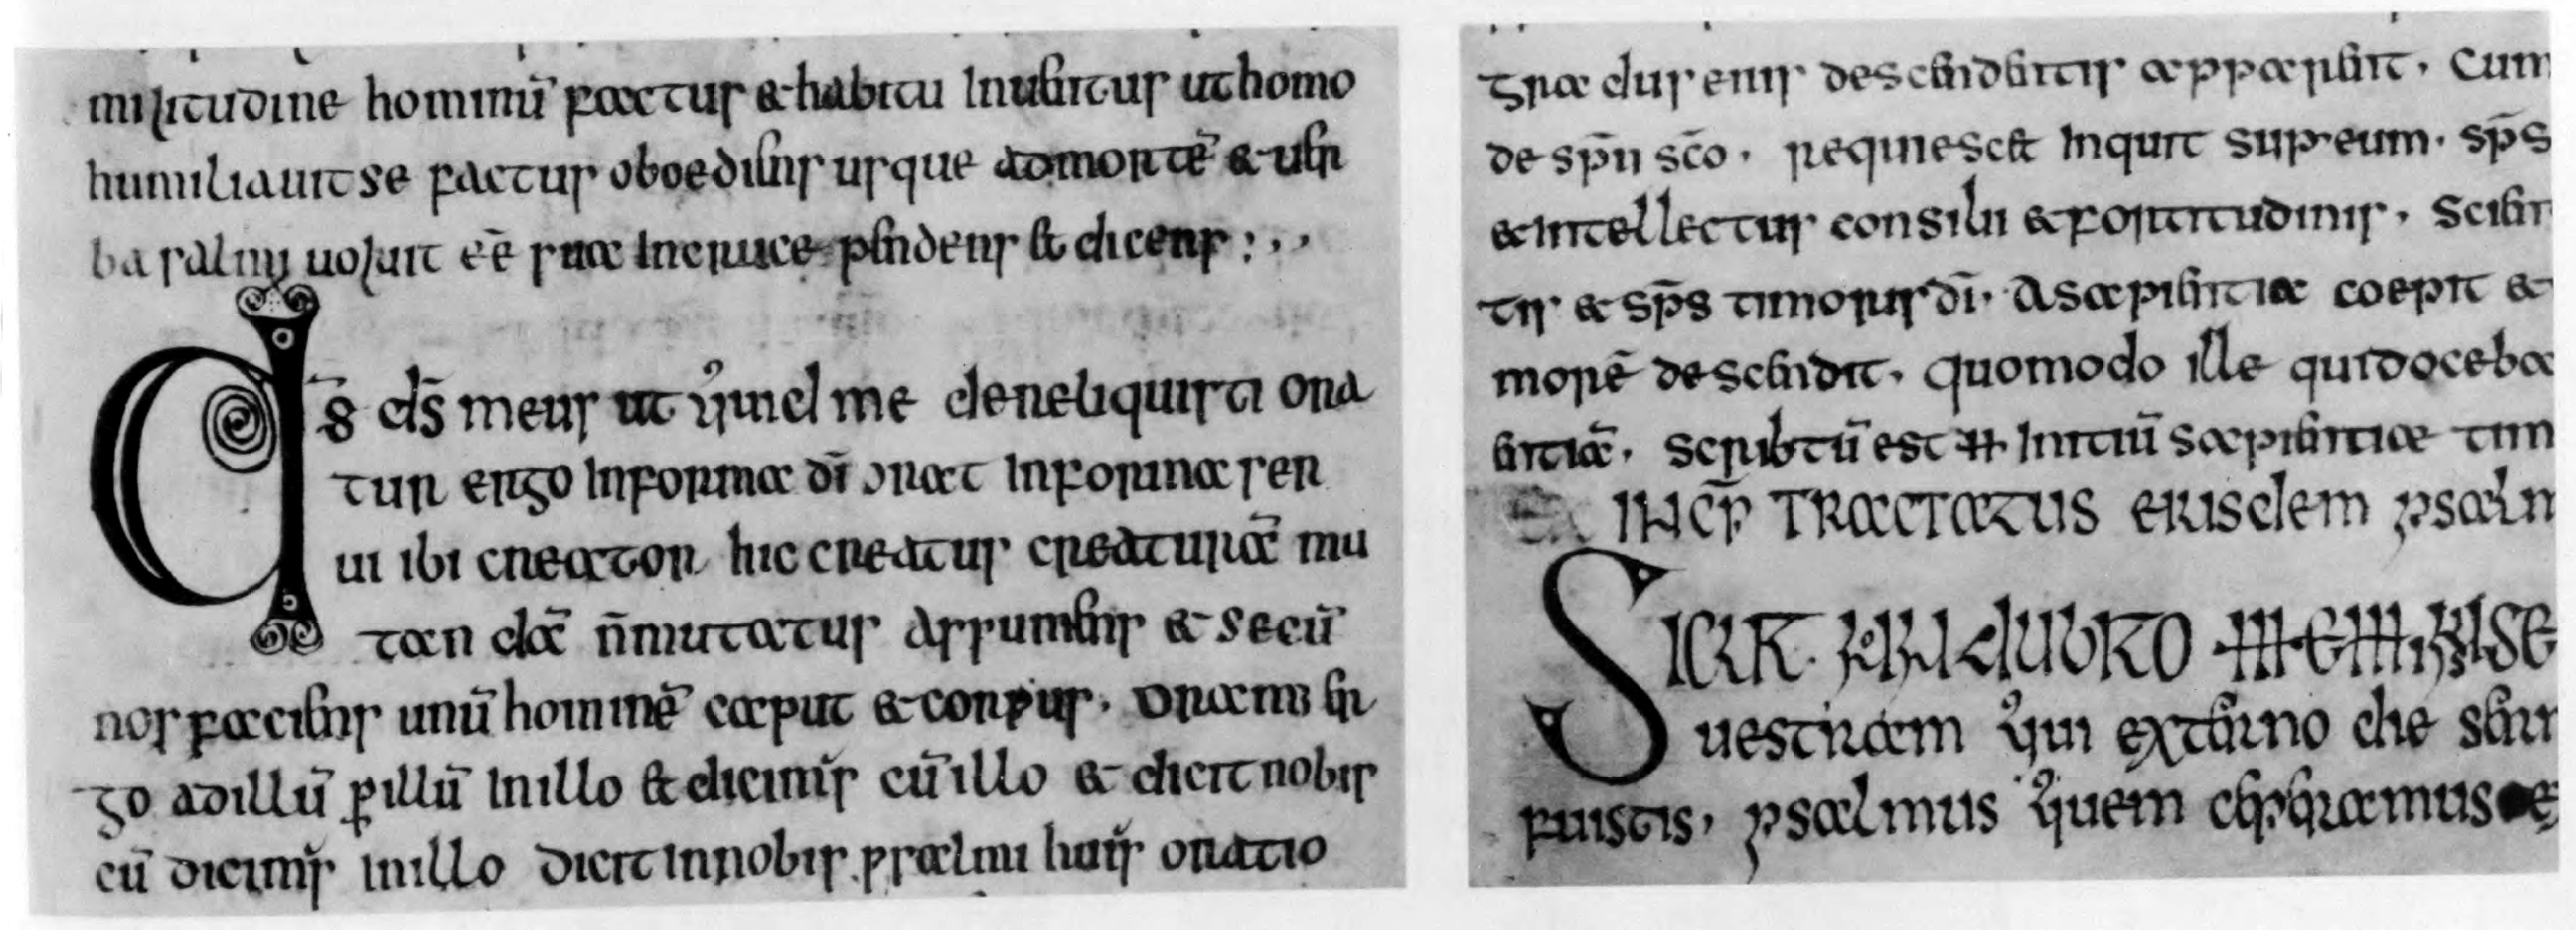 militudine hominū factus & habitu inuentus ut homo
humiliauit se factus oboediens usque ad mortē & uer
ba psalmi uoluit eē sua in cruce pendens & dicens :,,
D̄s d̄s meus ut quid me dereliquisti ora
tur ergo in forma dī orat in forma ser
ui ibi creator hic creatur creaturā mu
tan dā n̄ mutatus assumens & secū
nos faciens unū hominē caput & corpus. oramus er
go ad illū ꝑ illū in illo & dicimus cū illo & dicit nobis
cū dicimus in illo dicit in nobis psalmi huius oratio
gra dus descendentis apparent. Cum
de sp̄u sc̄o. requiescet inquit super eum. sp̄s
& intellectus consilii & fortitudinis, scien
tis & sp̄s timoris dī. A sapientia coepit &
morē descendit. quomodo ille qui doceba
entiā. scribtū est ɧ initiū sapientiae tim
INCP̄ TRACTATUS eiusdem psalm
Sicut dubito meminisse
uestram qui externo die ser
fuistis, psalmus quem